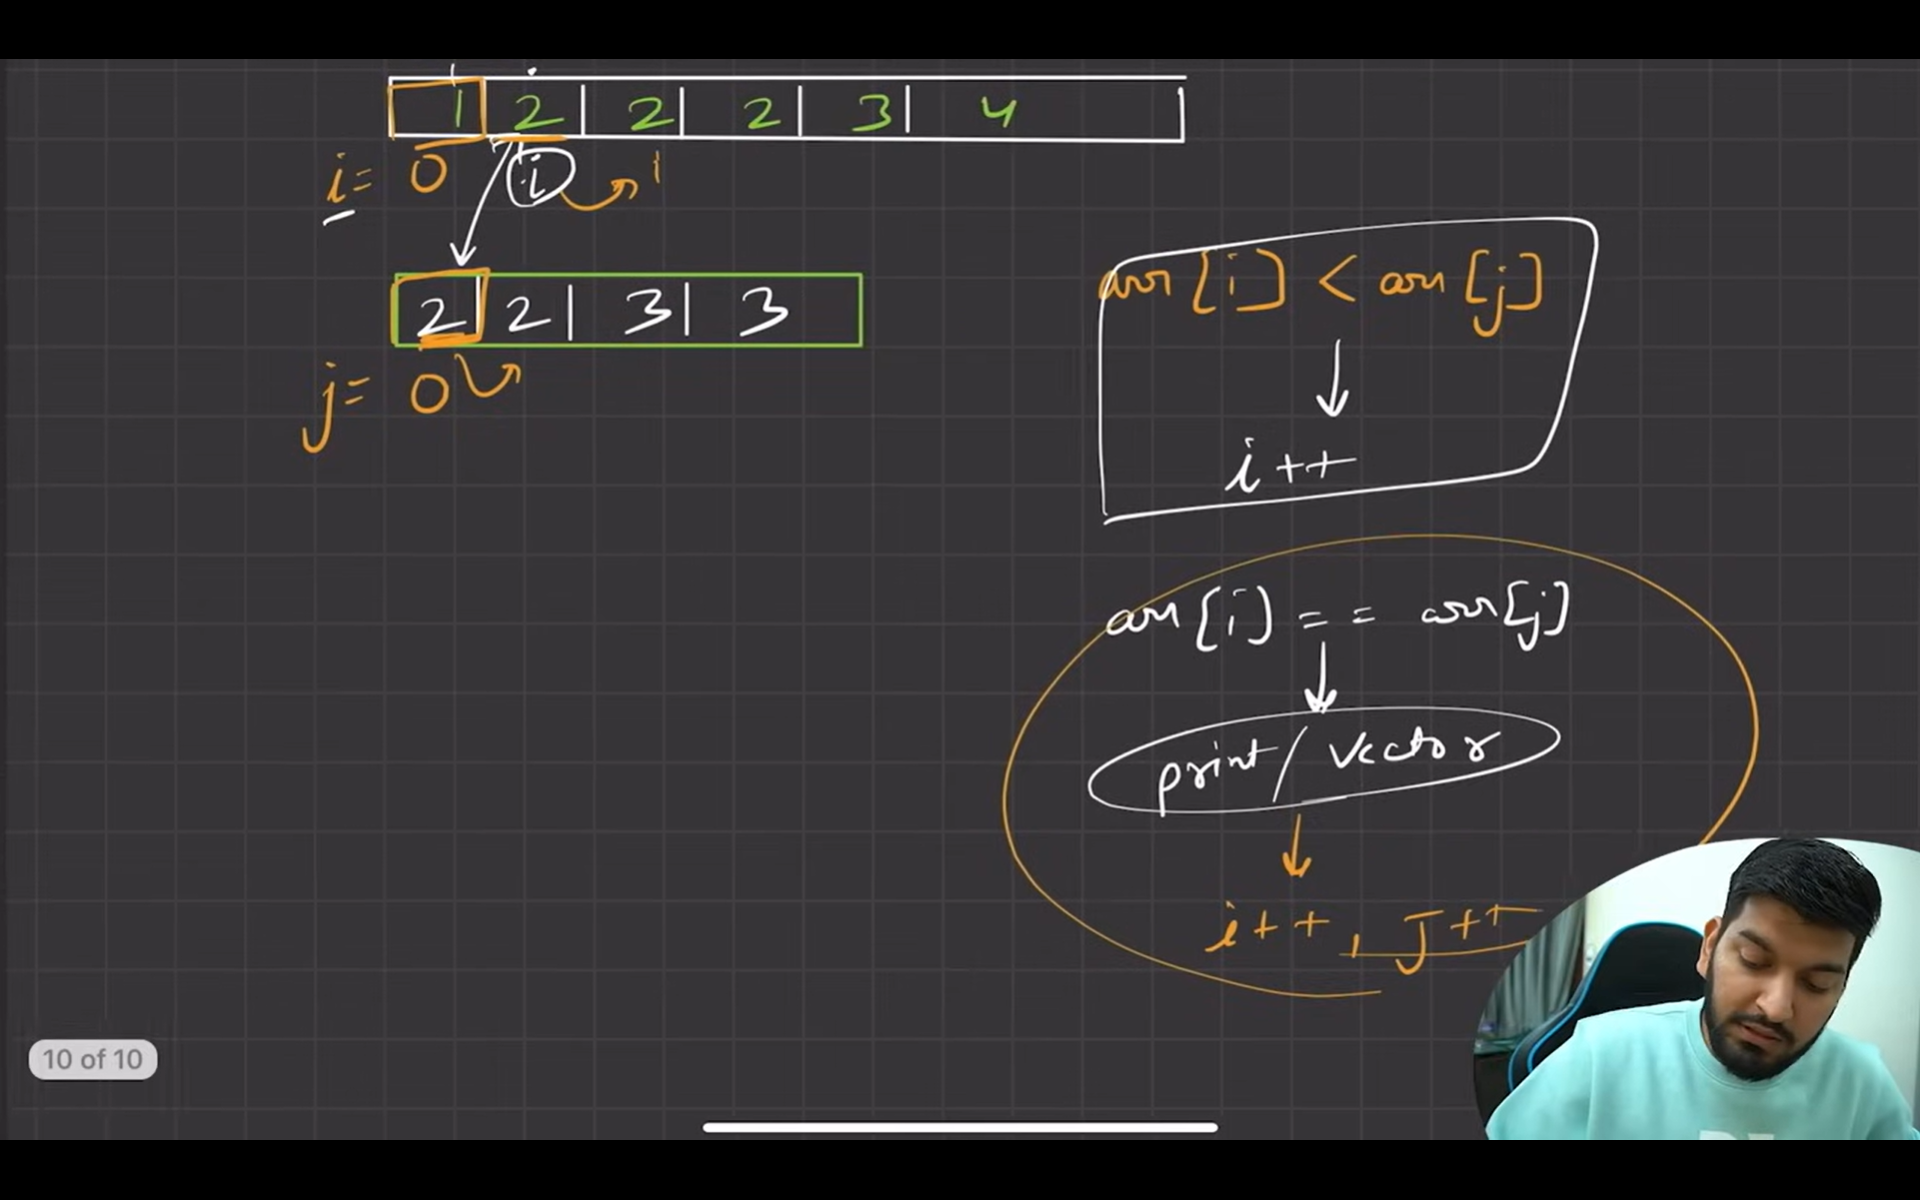 1 2 | 2 | 2 | 3 | 4
i = 0 i 1
2 | 2 | 3 | 3
j = 0
arr[i] < arr[j]
i++
arr[i] == arr[j]
print / vector
i++, J++
10 of 10